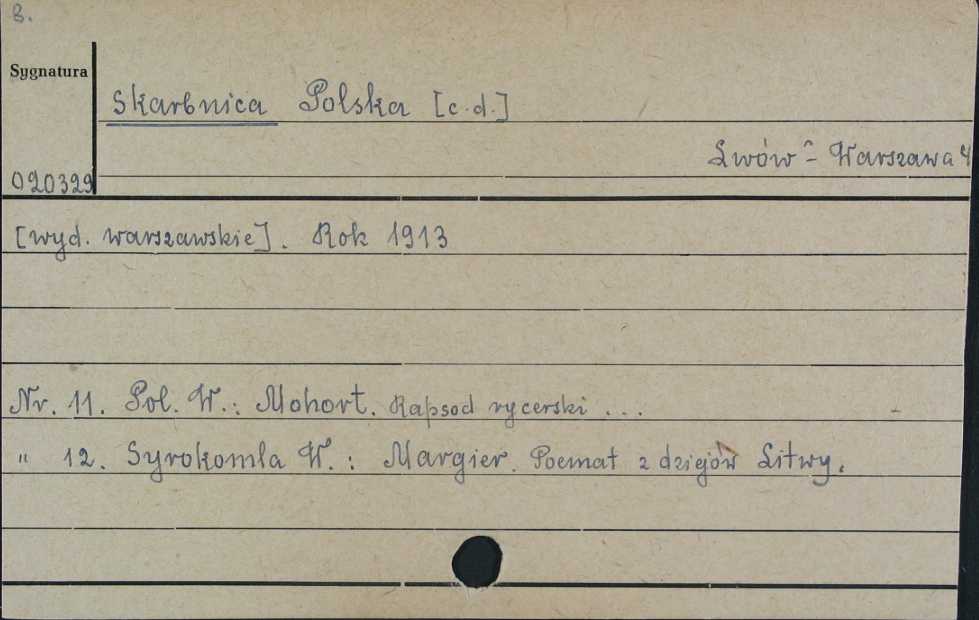 8.
Sygnatura
Skarbnica Polska [c.d.]
Lwów - Warszawa
020329
[wyd. warszawskie]. Rok 1913
Nr. 11. Pol. W.: Mohort. Rapsod rycerski ...
" 12. Syrokomla W.: Margier. Poemat z dziejów Litwy.